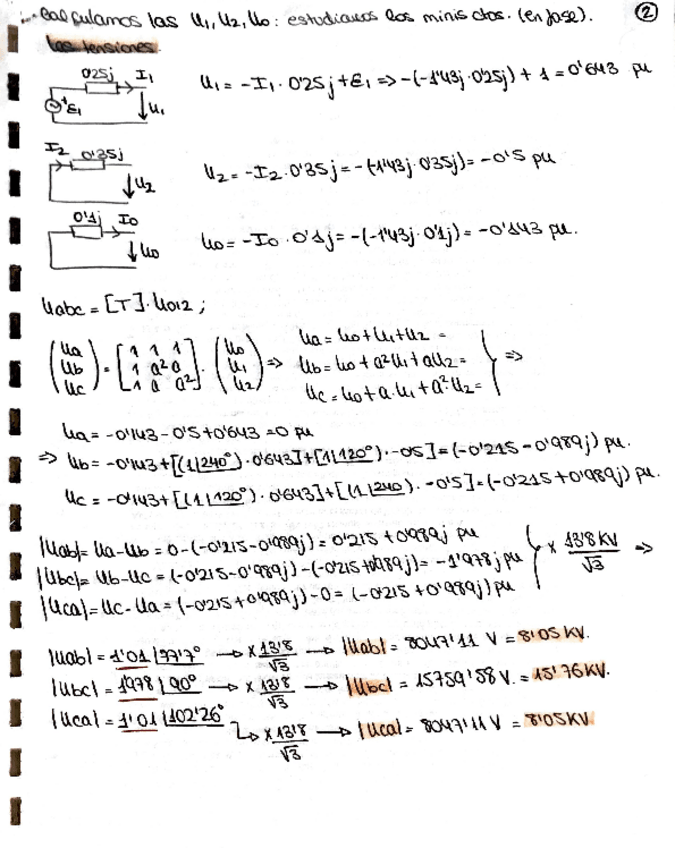 Calculamos las U₁, U₂, U₀: estudiamos los minis ctos. (en fase). ②
Las tensiones.
0'25j I₁ + E₁ U₁ U₁ = -I₁ · 0'25j + E₁ => -(-1'43j · 0'25j) + 1 = 0'643 pu
I₂ 0'35j U₂ U₂ = -I₂ · 0'35j = -(-1'43j · 0'35j) = -0'5 pu
0'1j I₀ U₀ U₀ = -I₀ · 0'1j = -(-1'43j · 0'1j) = -0'143 pu.
Uabc = [T] · U₀₁₂ ;
(Ua Ub Uc) = [1 1 1 / 1 a² a / 1 a a²] · (U₀ U₁ U₂) =>
Ua = U₀ + U₁ + U₂ =
Ub = U₀ + a²U₁ + aU₂ = =>
Uc = U₀ + a·U₁ + a²U₂ =
Ua = -0'143 - 0'5 + 0'643 = 0 pu
=> Ub = -0'143 + [(1|240°) · 0'643] + [1|120°) · -0'5] = (-0'215 - 0'989j) pu.
Uc = -0'143 + [(1|120°) · 0'643] + [(1|240) · -0'5] = (-0'215 + 0'989j) pu.
|Uab| = Ua - Ub = 0 - (-0'215 - 0'989j) = 0'215 + 0'989j pu
|Ubc| = Ub - Uc = (-0'215 - 0'989j) - (-0'215 + 0'989j) = -1'978j pu × 13'8 KV / √3 =>
|Uca| = Uc - Ua = (-0'215 + 0'989j) - 0 = (-0'215 + 0'989j) pu
|Uab| = 1'01 |77'7° → × 13'8 / √3 → |Uab| = 8047'11 V = 8'05 KV.
|Ubc| = 1'978 |90° → × 13'8 / √3 → |Ubc| = 15759'58 V. = 15'76 KV.
|Uca| = 1'01 |102'26° → × 13'8 / √3 → |Uca| = 8047'11 V = 8'05 KV